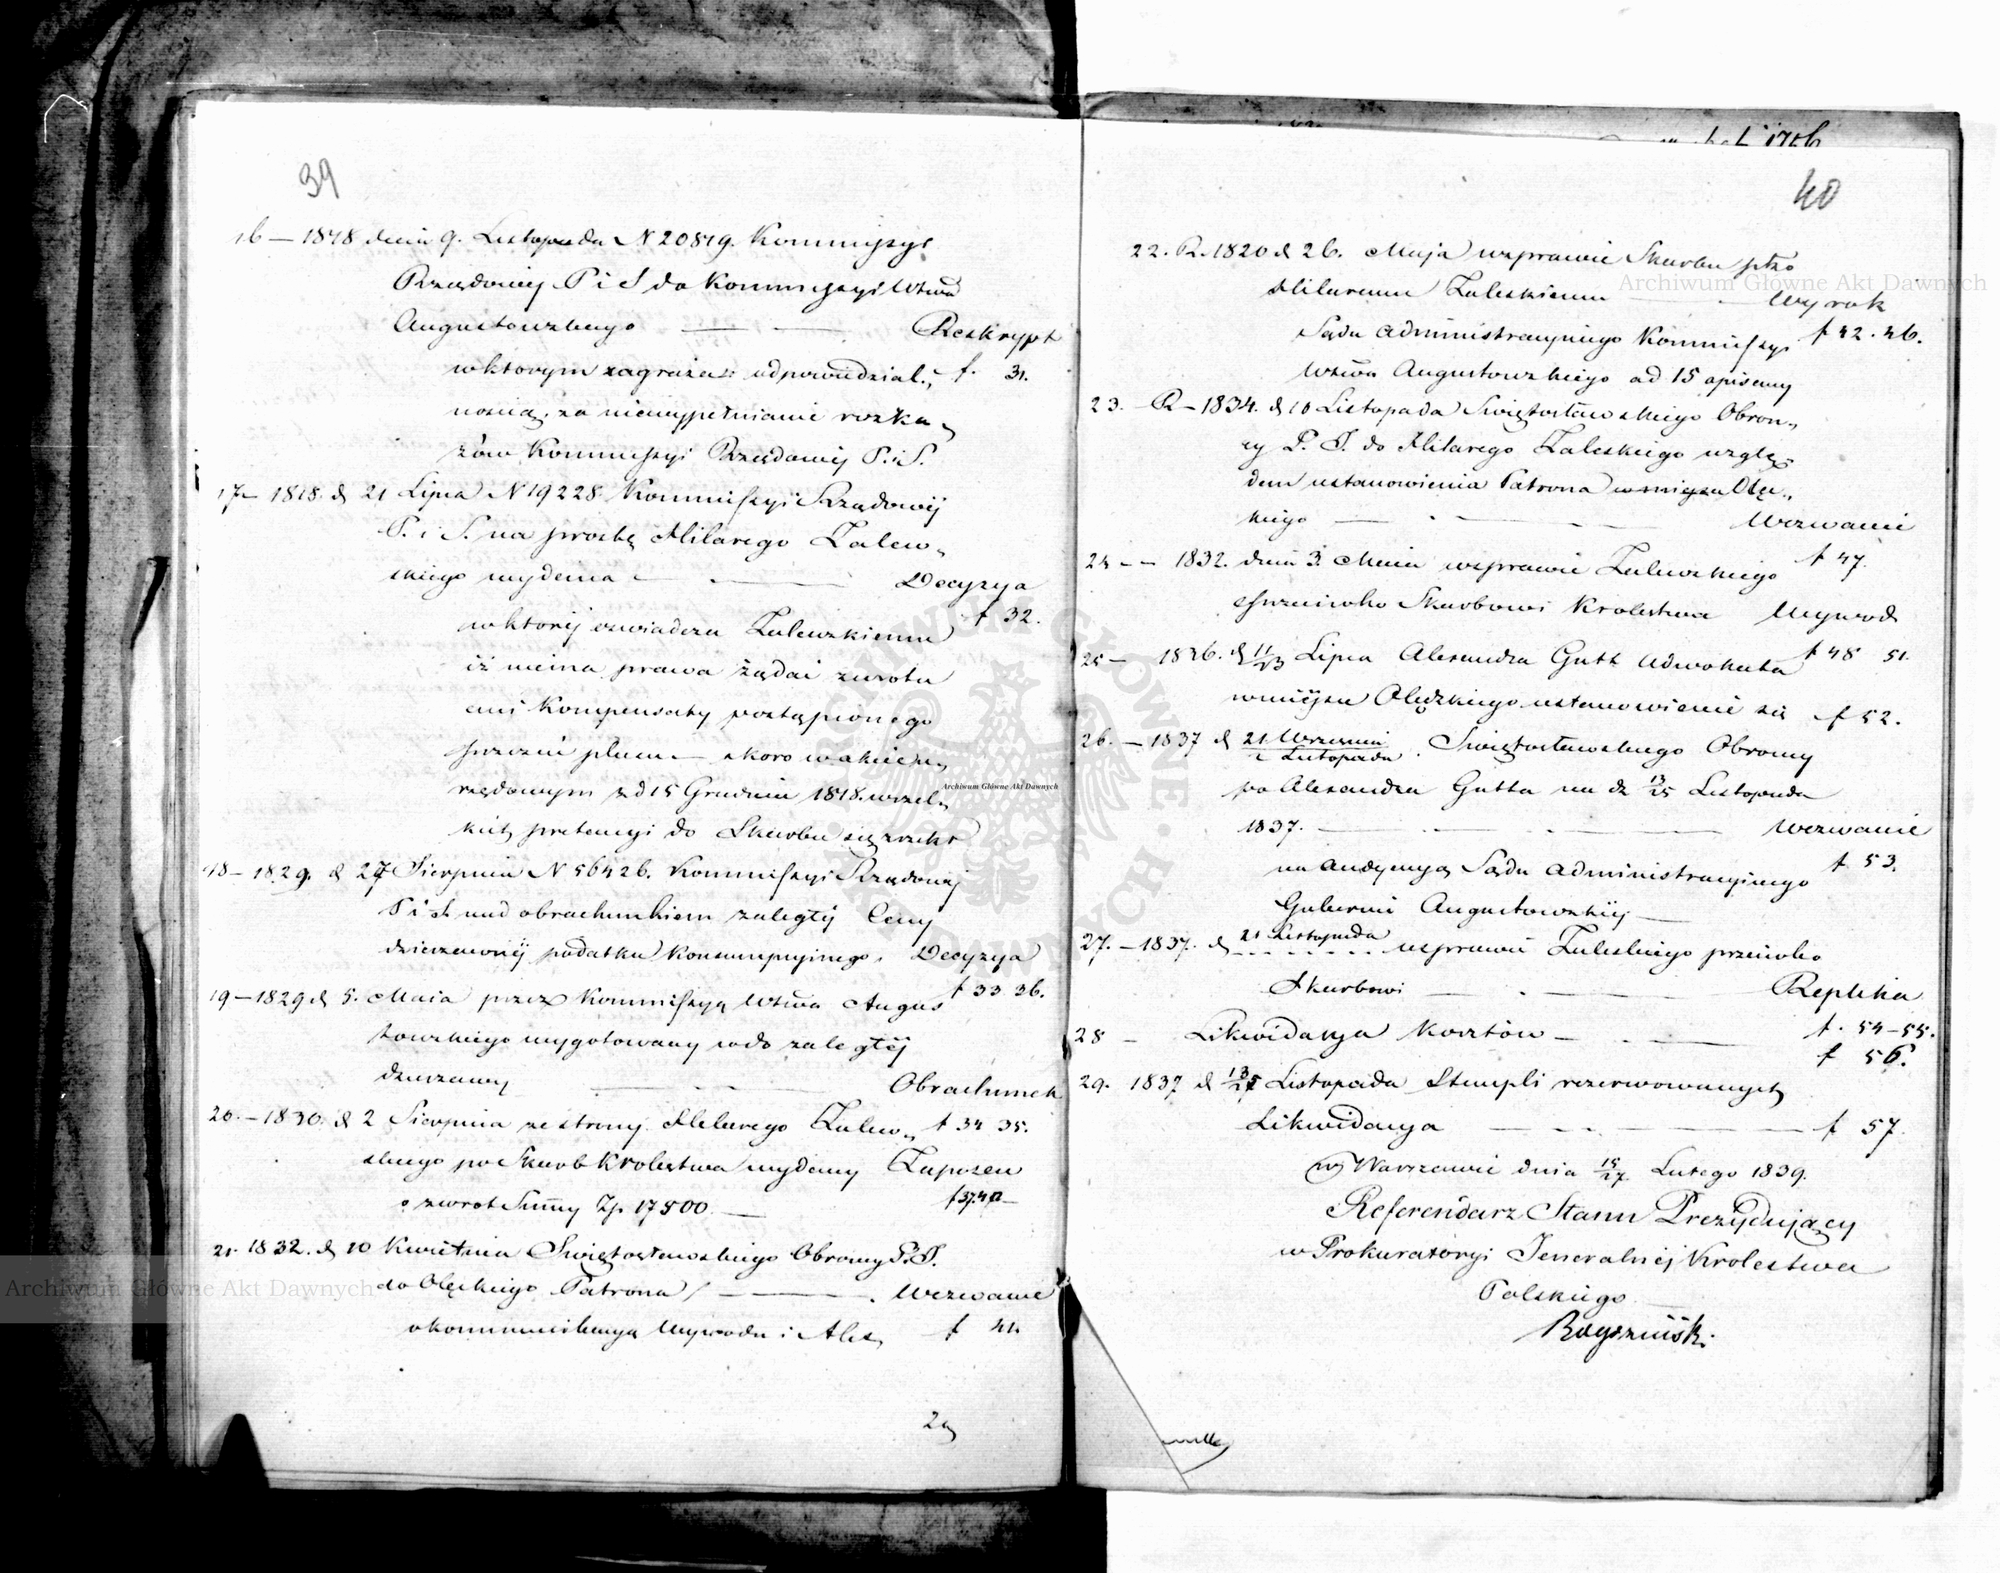 39
16 — 1818 dnia 9. Listopada N 20819. Kommissyi
Rządowéj P i S do Kommissyi Wtwa
Augustowskiego — — Reskrypt
w którym zagraża odpowiedzial., f. 31.
nością, za niewypełnianie rozka„
zów Kommissyi Rządowéj P. i S.
17 — 1818. d 21 Lipca N 19228 Kommissyi Rządowéj
P. i S. na prośbę Hilarego Zalew„
skiego wydana — — Decyzya
w któréj oświadcza Zalewskiemu f 32.
iż niema prawa żądać zwrotu
ani Kompensaty postąpionego
przezeń plus — skoro w akcie u„
rzędowym z d 15 Grudnia 1818. wszel„
kiéj pretensyi do Skarbu się zrzekł
18 — 1829. d 27 Sierpnia N 56426. Kommissyi Rządowéj
P i S nad obrachunkiem zaległéj Ceny
dzierzawnéj podatku Konsumpcyinego. Decyzya
19 — 1829 d 5. Maia przez Kommissyą Wtwa Augus f 33 36.
towskiego wygotowany co do zaległéj
dzierzawy — — Obrachunek
20. — 1830. d 2 Sierpnia ze strony Hilarego Zalew„ f 34 35.
skiego po Skarb Królestwa wydany Zapozew
o zwrot Summy Zp. 17500. — f 37.40 —
21. 1832. d 10 Kwietnia Świętosławskiego Obrońcy P. S.
do Olęskiego Patrona — — Wezwanie
o kommunikacyą Wywodu i Akt„ f 41.
29
40
22. R. 1820 d 26. Maja w sprawie Skarbu ptko
Hilaremu Zaleskiemu — — Wyrok
Sądu administracyinego Kommissyi f 42. 46.
Wtwa Augustowskiego ad 15 opisany
23. R — 1834. d 10 Listopada Świętosławskiego Obroń„
cy P. S. do Hilarego Zaleskiego wzglę„
dem ustanowienia Patrona w miejsce Olę„
skiego — — Wezwanie
24 — — 1832. dnia 3. Maia w sprawie Zalewskiego f 47.
przeciwko Skarbowi Królestwa Wywod
25 — 1836. d 11/23 Lipca Alexandra Gutt Adwokata f 48 51.
w miéjsce Olędzkiego ustanowienie się f 52.
26. — 1837 d 21 Wrzesnia/2 Listopada. Świętosławskiego Obrońcy
po Alexandra Gutta na dz 13/25 Listopada
1837. — — Wezwanie
na audyencyą Sądu administracyinego f 53.
Gubernii Augustowskiéj —
27. — 1837. d 21 Listopada w sprawie Zaleskiego przeciwko
Skarbowi — — Replika
28 — Likwidacya kosztów — — f. 54–55.
f 56.
29. 1837 d 13/25 Listopada Stempli rezerwowanych
Likwidacya — — f 57.
w Warszawie dnia 15/27 Lutego 1839.
Referendarz Stanu Prezydujący
w Prokuratoryi Jeneralnéj Królestwa
Polskiego
Archiwum Główne Akt Dawnych
Archiwum Główne Akt Dawnych
Archiwum Główne Akt Dawnych
ARCHIWUM GŁÓWNE AKT DAWNYCH